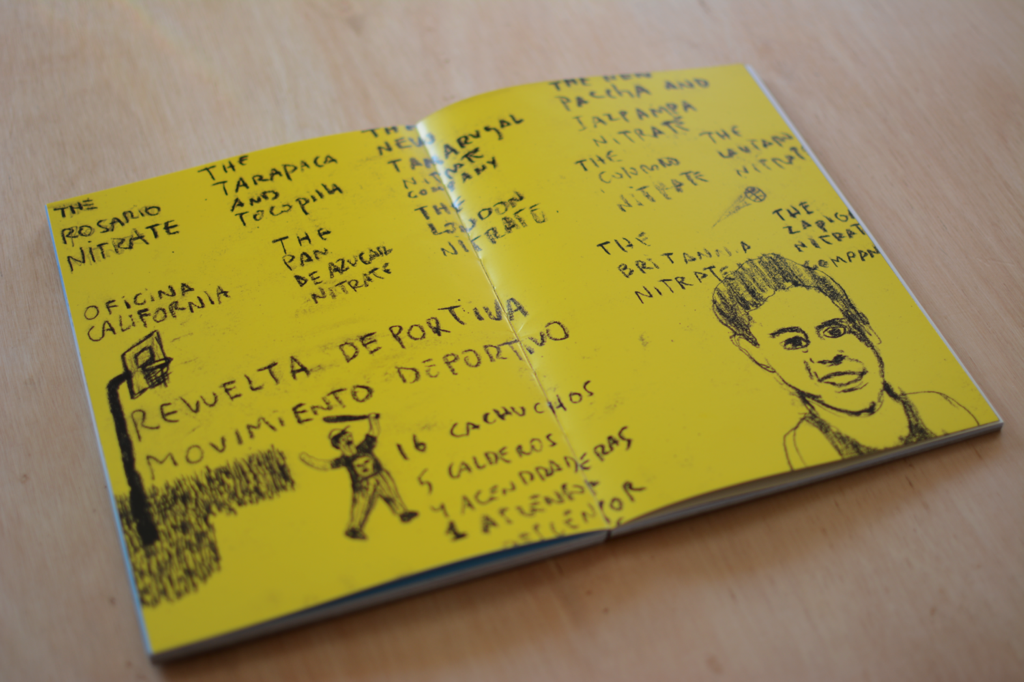 THE
ROSARIO
NITRATE
THE
TARAPACA
AND
TOCOPILLA
THE
NEW
TAMARUGAL
NITRATE
COMPANY
THE
PACCHA AND
JAZPAMPA
NITRATE
THE
COLORADO
NITRATE
THE
NITRATE
THE
PAN
DE AZUCAR
NITRATE
THE
LONDON
NITRATE
THE
BRITANNIA
NITRATE
THE
NITRAT
COMPAN
OFICINA
CALIFORNIA
REVUELTA DEPORTIVA
MOVIMIENTO DEPORTIVO
16 CACHUCHOS
5 CALDEROS
4 ACENDRADERAS
1